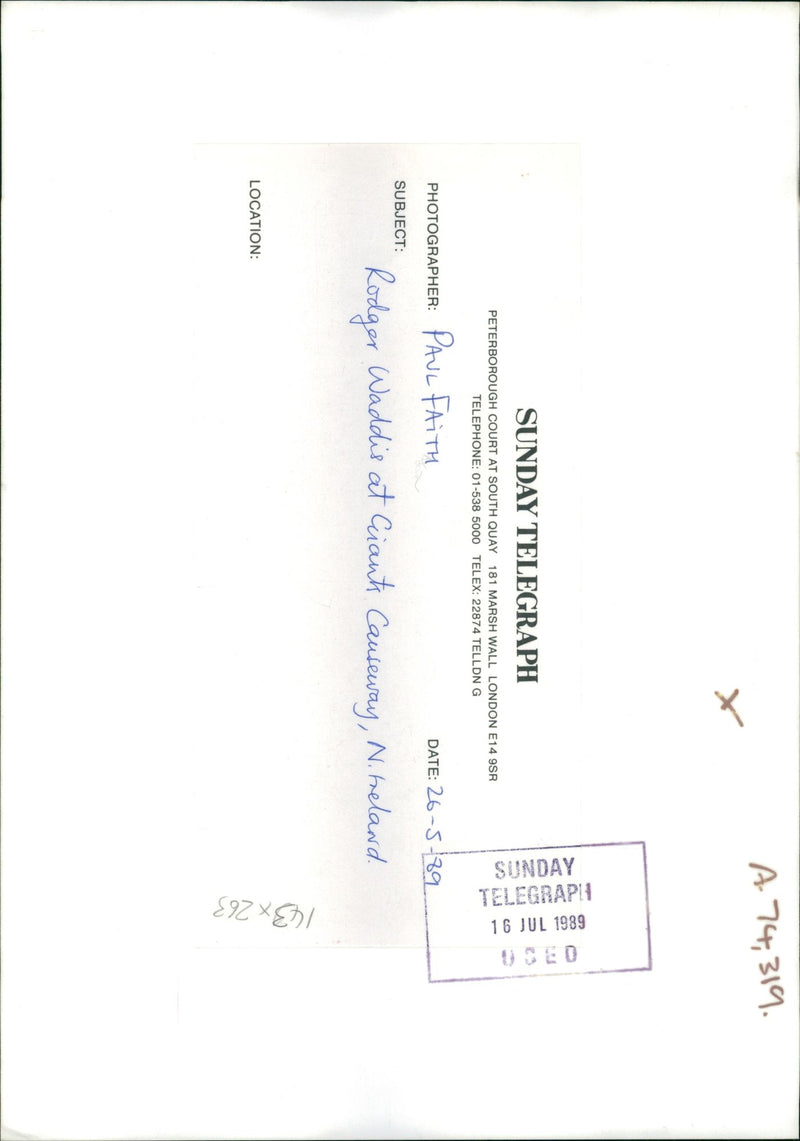 SUNDAY TELEGRAPH
PETERBOROUGH COURT AT SOUTH QUAY 181 MARSH WALL LONDON E14 9SR
TELEPHONE: 01-538 5000 TELEX: 22874 TELLDN G
PHOTOGRAPHER: PAUL FAITH DATE: 26-5-89
SUBJECT:
Rodger Waddis at Giants Causeway, N. Ireland.
LOCATION:
SUNDAY
TELEGRAPH
16 JUL 1989
USED
X
A.74,319.
143 x 263